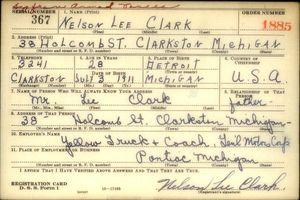 SERIAL NUMBER 1. NAME (Print) ORDER NUMBER
367 NELSON LEE CLARK 1885
2. ADDRESS (Print)
38 HOLCOMB ST. CLARKSTON MICHIGAN
3. TELEPHONE 4. AGE IN YEARS 5. PLACE OF BIRTH 6. COUNTRY OF CITIZENSHIP
3241 28 DETROIT
DATE OF BIRTH
CLARKSTON 3 1911 MICHIGAN U.S.A.
7. NAME OF PERSON WHO WILL ALWAYS KNOW YOUR ADDRESS 8. RELATIONSHIP OF THAT PERSON
Mr. Lee Clark father
9. ADDRESS OF THAT PERSON
38 Holcomb St. Clarkston Michigan
10. EMPLOYER'S NAME
Yellow Truck & Coach. Genl Motors Corp
11. PLACE OF EMPLOYMENT OR BUSINESS
Pontiac Michigan
I AFFIRM THAT I HAVE VERIFIED ABOVE ANSWERS AND THAT THEY ARE TRUE.
REGISTRATION CARD
D. S. S. FORM 1
Nelson Lee Clark